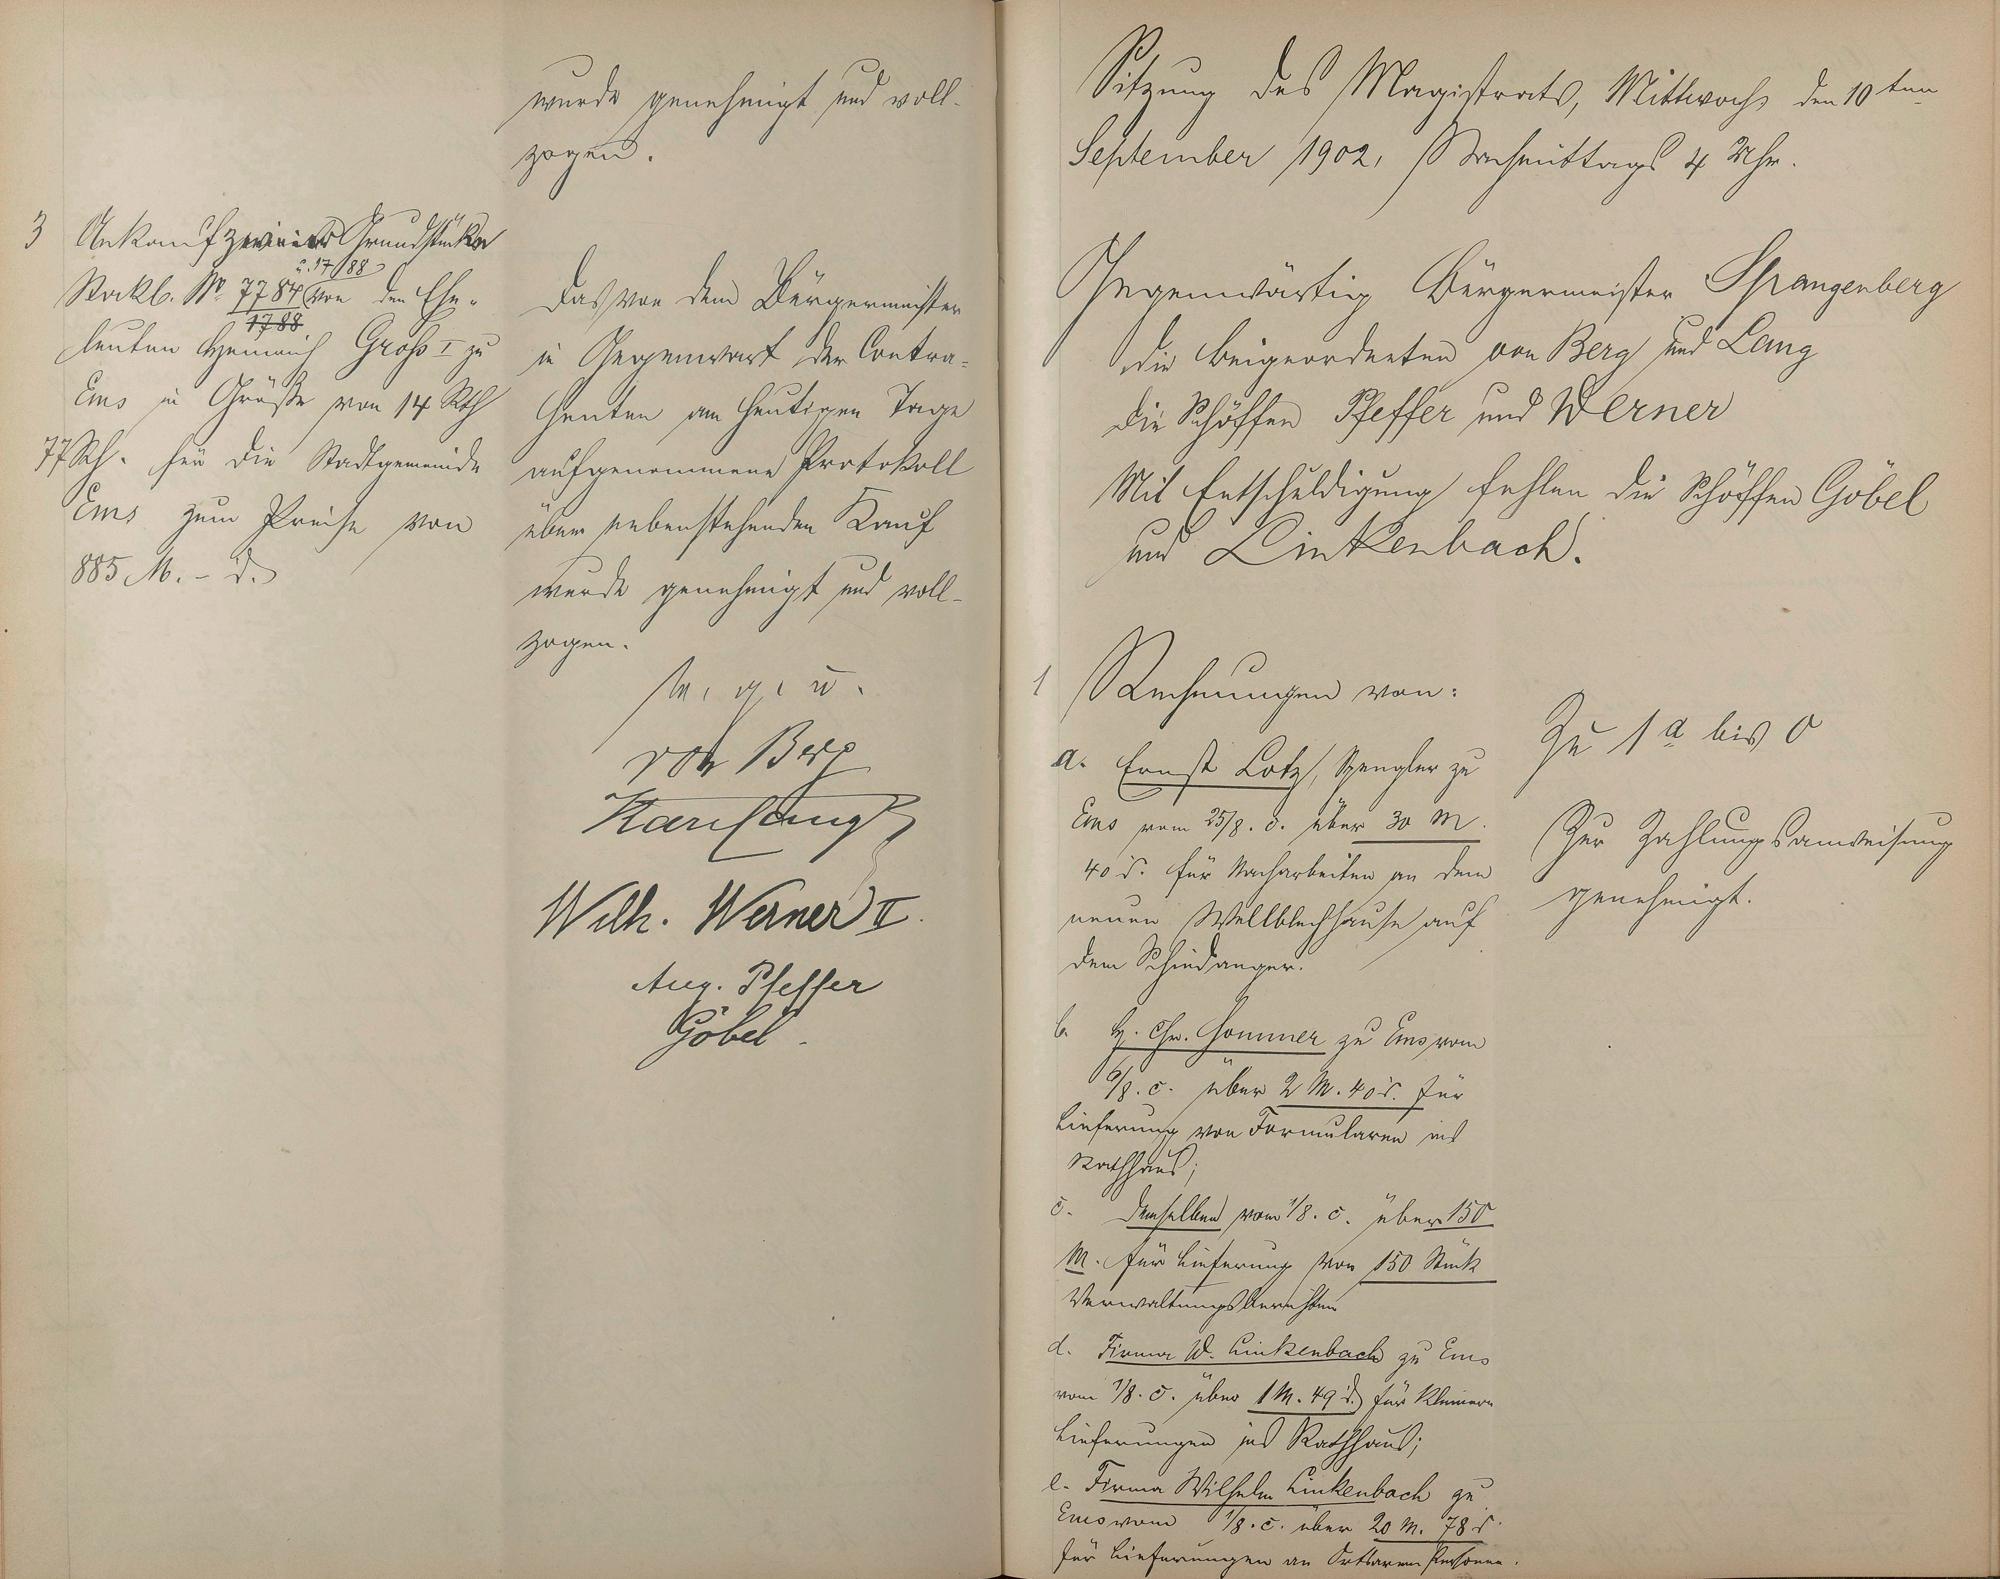 wurde genehmigt und voll-
zogen.
3 Ankauf zweier Grundstücke
Stockb. No 7784 u. 1788 von den Ehe-
1788
leuten Heinrich Groß I zu
Ems in Größe von 14 Rth
77 Sch. für die Stadtgemeinde
Ems zum Preise von
885 M. – d.
Das von dem Bürgermeister
in Gegenwart der Contra-
henten am heutigen Tage
aufgenommene Protokoll
über nebenstehenden Kauf
wurde genehmigt und voll-
zogen.
v. g. u.
von Berg
Karl Lang
Wilh. Werner II.
Aug. Pfeffer
Göbel.
Sitzung des Magistrats, Mittwoch, den 10ten
September 1902, Nachmittags 4 Uhr.
Gegenwärtig Bürgermeister Spangenberg
die Beigeordneten von Berg und Lang
die Schöffen Pfeffer und Werner
Mit Entschuldigung fehlen die Schöffen Göbel
und Linkenbach.
1 Rechnungen von:
a. Ernst Lotz, Spengler zu
Ems vom 25/8. c. über 30 M.
40 d. für Nacharbeiten an dem
neuen Wellblechhause auf
dem Schindanger.
b. H. Chr. Sommer zu Ems vom
6/8. c. über 2 M. 40 d. für
Lieferung von Formularen ins
Rathhaus;
c. Demselben vom 1/8. c. über 150
M. für Lieferung von 150 Stück
Verwaltungsberichten
d. Firma W. Linkenbach zu Ems
vom 1/8. c. über 1 M. 49 d. für kleinere
Lieferungen ins Rathhaus;
e. Firma Wilhelm Linkenbach zu
Ems vom 1/8. c. über 20 M. 78 d.
für Lieferungen an Ortsarme Personen.
Zu 1 a bis o
Zur Zahlungsanweisung
genehmigt.